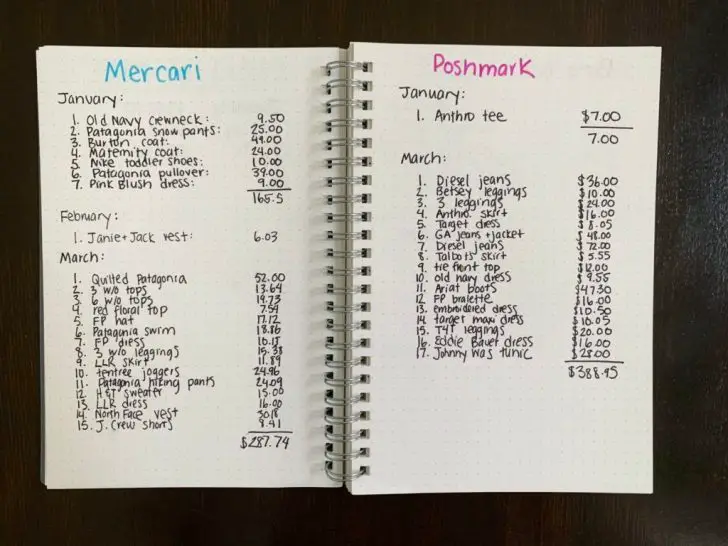 Mercari
January:
1. Old Navy crewneck: 9.50
2. Patagonia snow pants: 25.00
3. Burton coat: 49.00
4. Maternity coat: 24.00
5. Nike toddler shoes: 10.00
6. Patagonia pullover: 39.00
7. Pink Blush dress: 9.00
165.5
February:
1. Janie+Jack vest: 6.03
March:
1. Quilted Patagonia 52.00
2. 3 w/o tops 13.64
3. 6 w/o tops 19.73
4. red floral top 7.54
5. FP hat 17.12
6. Patagonia swim 18.86
7. FP dress 10.17
8. 3 w/o leggings 15.38
9. LLR skirt 11.89
10. tentree joggers 24.96
11. Patagonia hiking pants 24.09
12. H&T sweater 15.00
13. LLR dress 16.00
14. North Face vest 30.18
15. J. Crew shorts 8.41
$287.74
Poshmark
January:
1. Anthro tee $7.00
7.00
March:
1. Diesel jeans $36.00
2. Betsey leggings $10.00
3. 3 leggings $24.00
4. Anthro. skirt $16.00
5. Target dress $8.05
6. GA jeans + jacket $48.00
7. Diesel jeans $72.00
8. Talbots skirt $5.55
9. tie front top $12.00
10. old navy dress $9.55
11. Ariat boots $47.30
12. FP bralette $16.00
13. embroidered dress $10.50
14. target maxi dress $10.05
15. T4T leggings $20.00
16. Eddie Bauer dress $16.00
17. Johnny was tunic $28.00
$388.95